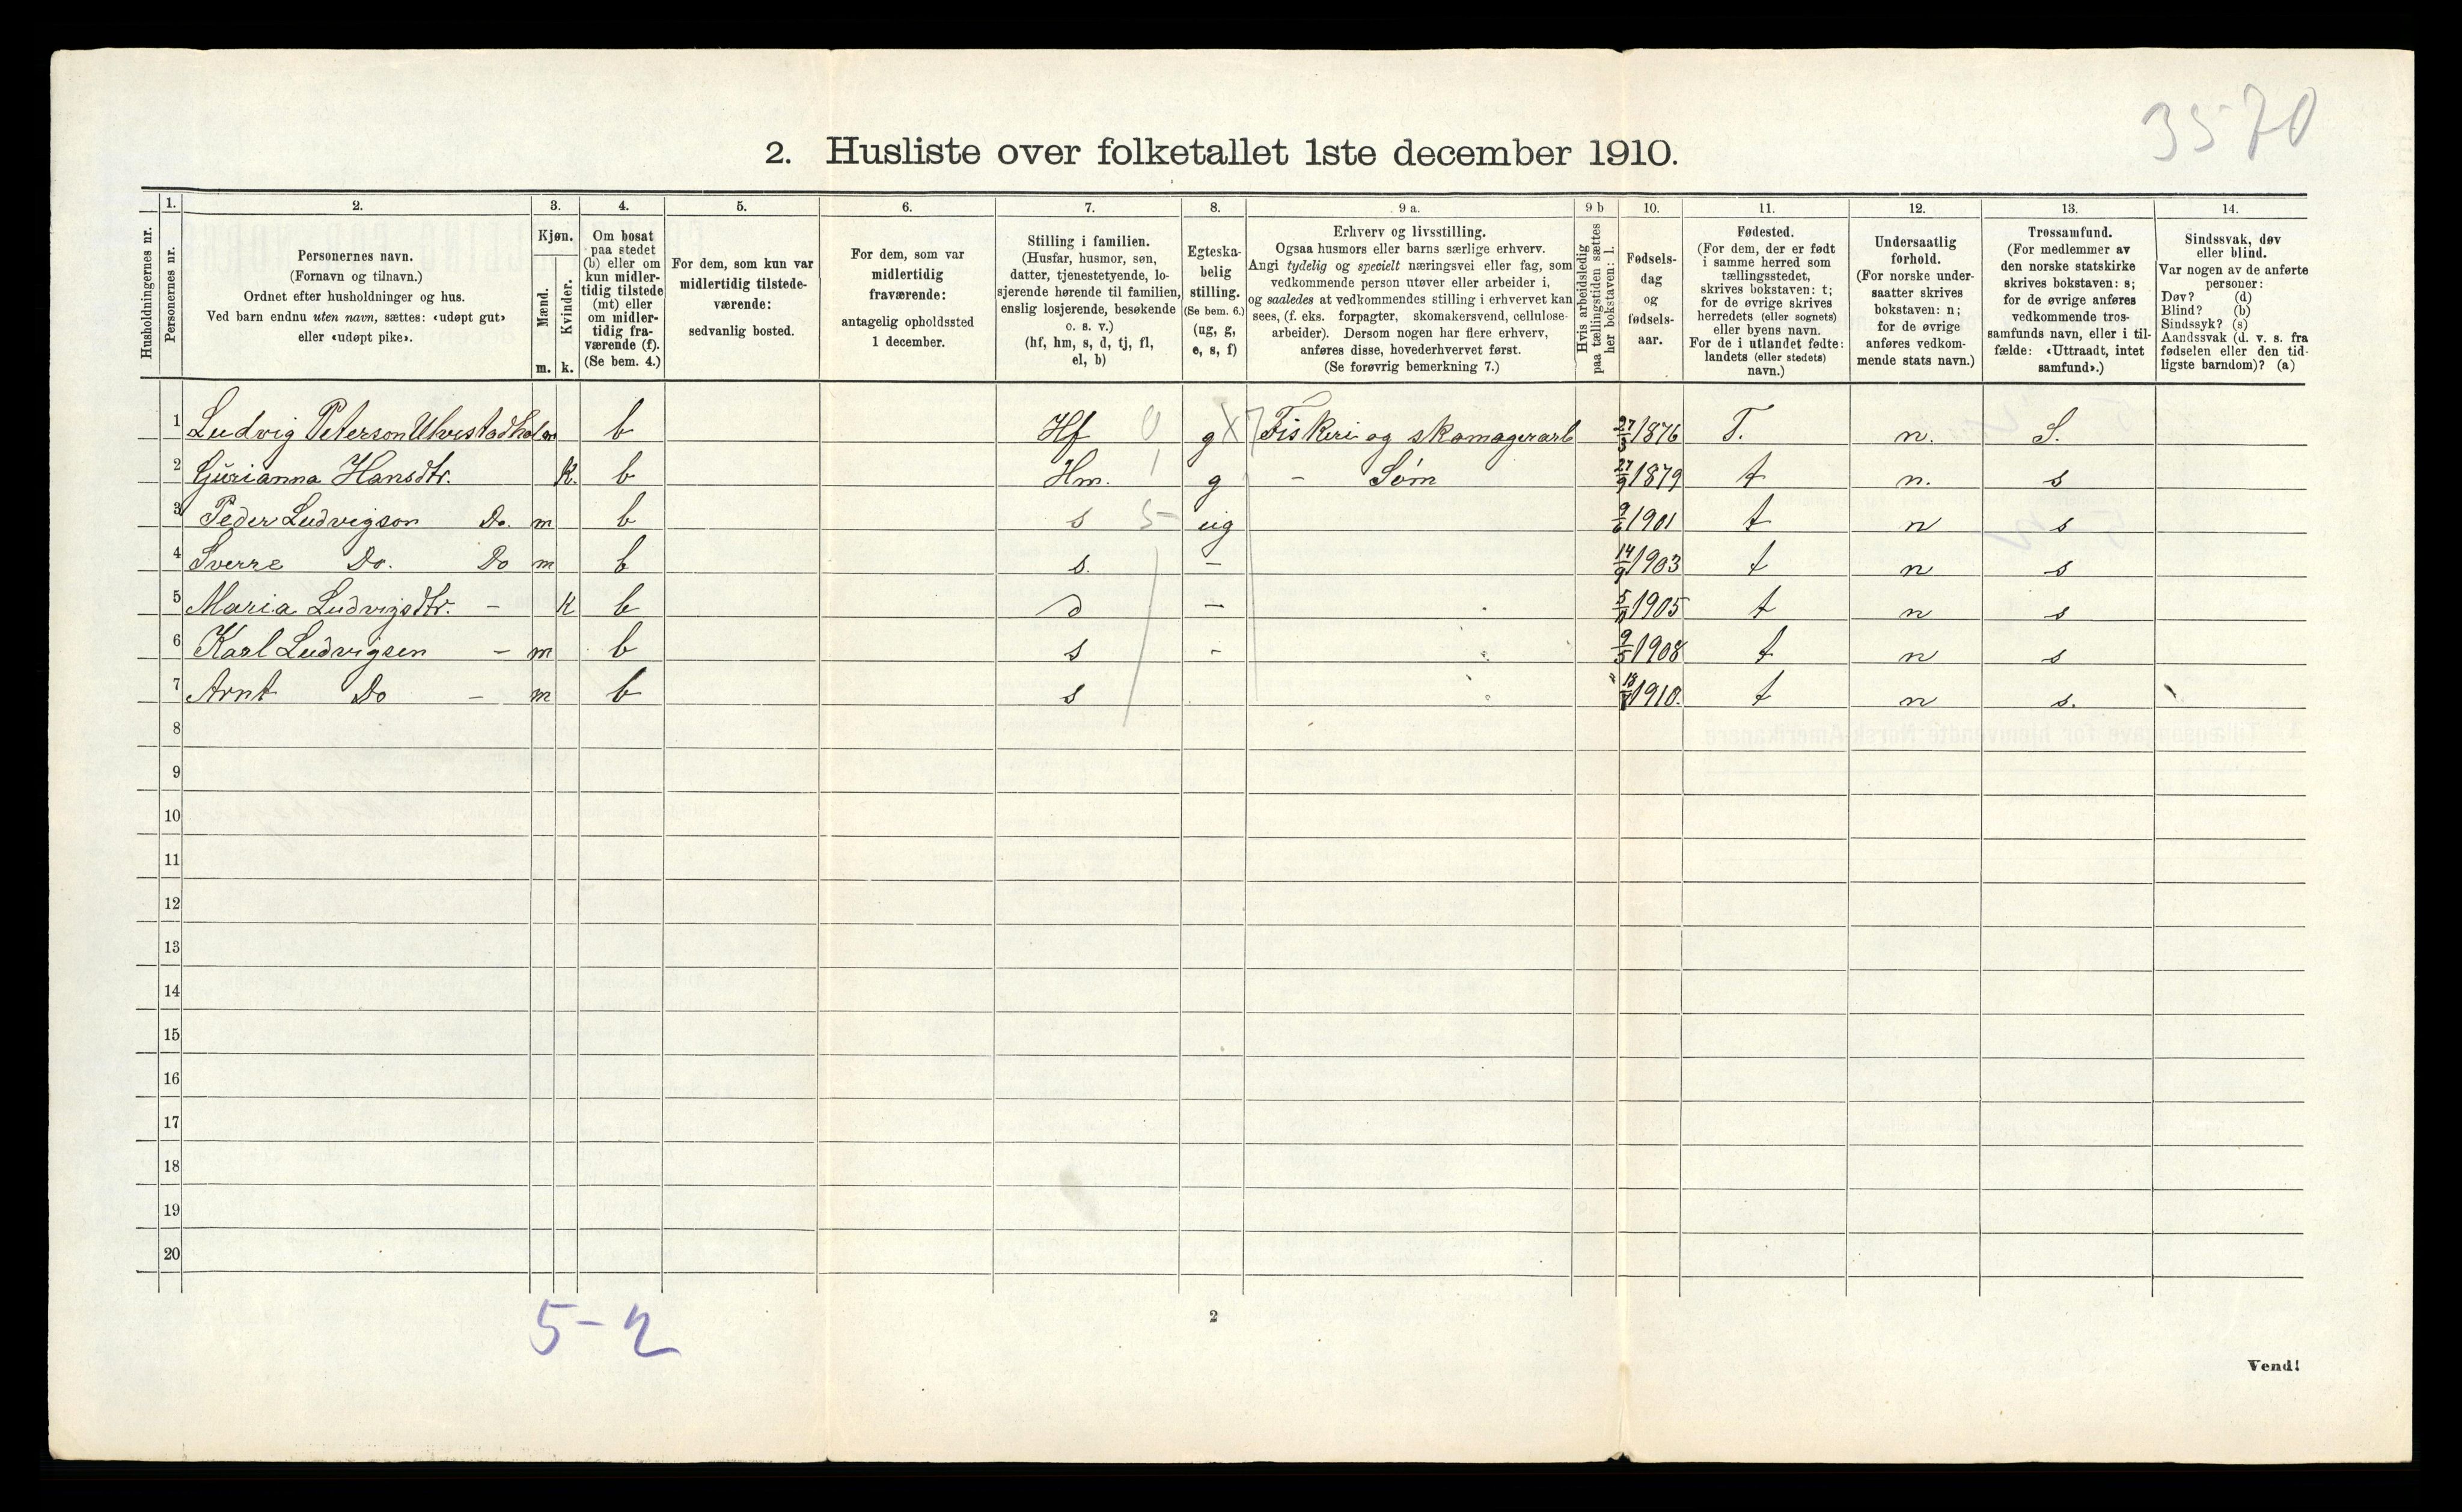 3570
2. Husliste over folketallet 1ste december 1910.
Husholdningernes nr.
1.
Personernes nr.
2.
Personernes navn.
(Fornavn og tilnavn.)
Ordnet efter husholdninger og hus.
Ved barn endnu uten navn, sættes: «udøpt gut»
eller «udøpt pike».
3.
Kjøn.
Mænd.
Kvinder.
m. k.
4.
Om bosat
paa stedet
(b) eller om
kun midler-
tidig tilstede
(mt) eller
om midler-
tidig fra-
værende (f).
(Se bem. 4.)
5.
For dem, som kun var
midlertidig tilstede-
værende:
sedvanlig bosted.
6.
For dem, som var
midlertidig
fraværende:
antagelig opholdssted
1 december.
7.
Stilling i familien.
(Husfar, husmor, søn,
datter, tjenestetyende, lo-
sjerende hørende til familien,
enslig losjerende, besøkende
o. s. v.)
(hf, hm, s, d, tj, fl,
el, b)
8.
Egteska-
belig
stilling.
(Se bem. 6.)
(ug, g,
e, s, f)
9 a.
Erhverv og livsstilling.
Ogsaa husmors eller barns særlige erhverv.
Angi tydelig og specielt næringsvei eller fag, som
vedkommende person utøver eller arbeider i,
og saaledes at vedkommendes stilling i erhvervet kan
sees, (f. eks. forpagter, skomakersvend, cellulose-
arbeider). Dersom nogen har flere erhverv,
anføres disse, hovederhvervet først.
(Se forøvrig bemerkning 7.)
9 b
Hvis arbeidsledig
paa tællingstiden sættes
her bokstaven: l.
10.
Fødsels-
dag
og
fødsels-
aar.
11.
Fødested.
(For dem, der er født
i samme herred som
tællingsstedet,
skrives bokstaven: t;
for de øvrige skrives
herredets (eller sognets)
eller byens navn.
For de i utlandet fødte:
landets (eller stedets)
navn.)
12.
Undersaatlig
forhold.
(For norske under-
saatter skrives
bokstaven: n;
for de øvrige
anføres vedkom-
mende stats navn.)
13.
Trossamfund.
(For medlemmer av
den norske statskirke
skrives bokstaven: s;
for de øvrige anføres
vedkommende tros-
samfunds navn, eller i til-
fælde: «Uttraadt, intet
samfund».)
14.
Sindssvak, døv
eller blind.
Var nogen av de anførte
personer:
Døv? (d)
Blind? (b)
Sindssyk? (s)
Aandssvak (d. v. s. fra
fødselen eller den tid-
ligste barndom)? (a)
1 Ludvig Peterson Ulvestadholm b Hf 0 g X 7 Fiskeri og skomagerarb 27/3 1876 T. n. S.
2 Gurianna Hansdtr. K. b Hm. 1 g - Søm 27/9 1879 t n. s
3 Peder Ludvigson Do. m b s 5 ug 9/6 1901 t n s
4 Sverre Do. Do m b s. - 14/9 1903 t n s
5 Maria Ludvigsdtr. - K b d - 5/11 1905 t n s
6 Karl Ludvigsen - m b s - 9/5 1908 t n s
7 Arnt Do - m b s 1910. t n s.
8
9
10
11
12
13
14
15
16
17
18
19
20
5-2
2
Vend!